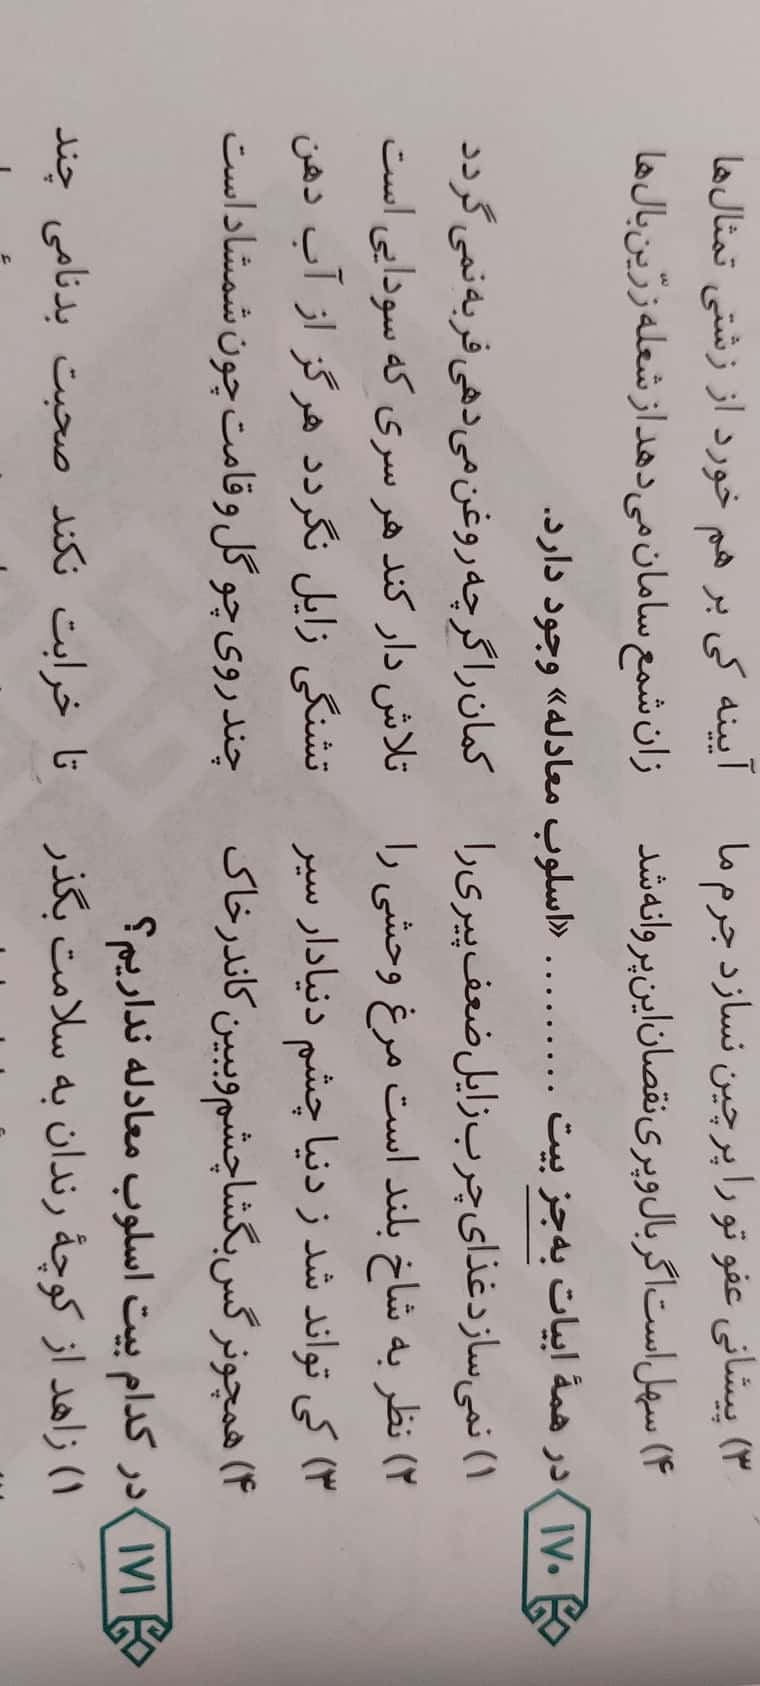 ۳) پیشانی عفو تو را پرچین نسازد جرم ما آیینه کی بر هم خورد از زشتی تمثال‌ها
۴) سهل است اگر بال و پری نقصان این پروانه شد زان شمع سامان می‌دهد از شعله زرّین بال‌ها
۱۷۰ در همهٔ ابیات به‌جز بیت .......... «اسلوب معادله» وجود دارد.
۱) نمی‌سازد غذای چرب زایل ضعف پیری را کمان را گرچه روغن می‌دهی فربه نمی‌گردد
۲) نظر به شاخ بلند است مرغ وحشی را تلاش دار کند هر سری که سودایی است
۳) کی تواند شد ز دنیا چشم دنیادار سیر تشنگی زایل نگردد هرگز از آب دهن
۴) همچو نرگس بگشا چشم و ببین کاندر خاک چند روی چو گل و قامت چون شمشاد است
۱۷۱ در کدام بیت اسلوب معادله نداریم؟
۱) زاهد از کوچهٔ رندان به سلامت بگذر تا خرابت نکند صحبت بدنامی چند